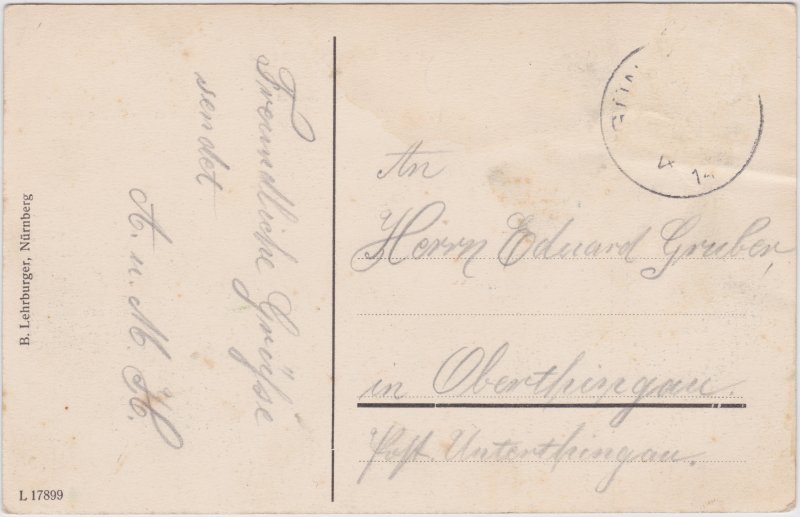 Freundliche Grüße
sendet
A. u. M. H.
B. Lehrburger, Nürnberg
L 17899
An
Herrn Eduard Gruber,
in Oberthingau.
Post. Unterthingau.